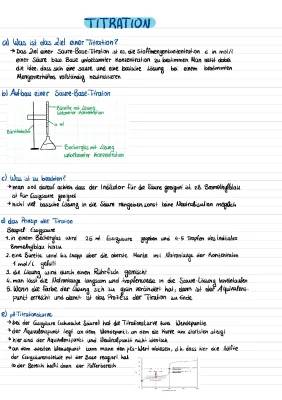 TITRATION
a) Was ist das Ziel einer Titration?
→ Das Ziel einer Säure-Base-Titration ist es, die Stoffmengenkonzentration c in mol/l
einer Säure bzw. Base unbekannter Konzentration zu bestimmen. Man nutzt dabei
die Idee, dass sich eine saure und eine basische Lösung bei einem bestimmten
Mengenverhältnis vollständig neutralisieren
b) Aufbau einer Säure-Base-Titration
Bürette mit Lösung
bekannter Konzentration
Becherglas mit Lösung
unbekannter Konzentration
c) Was ist zu beachten?
→ man soll darauf achten dass der Indikator für die Säure geeignet ist z.B. Bromthymolblau
ist für Essigsäure geeignet
→ nicht viel basische Lösung in die Säure reingeben, sonst keine Neutralisation möglich
d) das Prinzip der Titration
Beispiel Essigsäure
1. in einem Becherglas wird 25 ml Essigsäure gegeben und 4-5 Tropfen des Indikators
Bromthymolblau hinzu
2. eine Bürette wird bis knapp über die oberste Marke mit Natronlauge der Konzentration
1 mol/L gefüllt
3. die Lösung wird durch einen Rührfisch gemischt
4. man lässt die Natronlauge langsam und tropfenweise in die Säure-Lösung hineinlaufen
5. Wenn die Farbe der Lösung sich zu grün verändert hat, dann ist der Äquivalenz-
punkt erreicht und damit ist das Prozess der Titration zu Ende
e) pH-Titrationskurve
→ bei der Essigsäure (schwache Säure) hat die Titrationskurve zwei Wendepunkte
→ der Äquivalenzpunkt liegt an dem Wendepunkt, an dem die Kurve am steilsten steigt
→ hier sind der Äquivalenzpunkt und Neutralpunkt nicht identisch
→ an dem zweiten Wendepunkt kann man den pKs-Wert ablesen, d.h. dass hier die Hälfte
der Essigsäuremoleküle mit der Base reagiert hat
→ der Bereich heißt dann der Pufferbereich